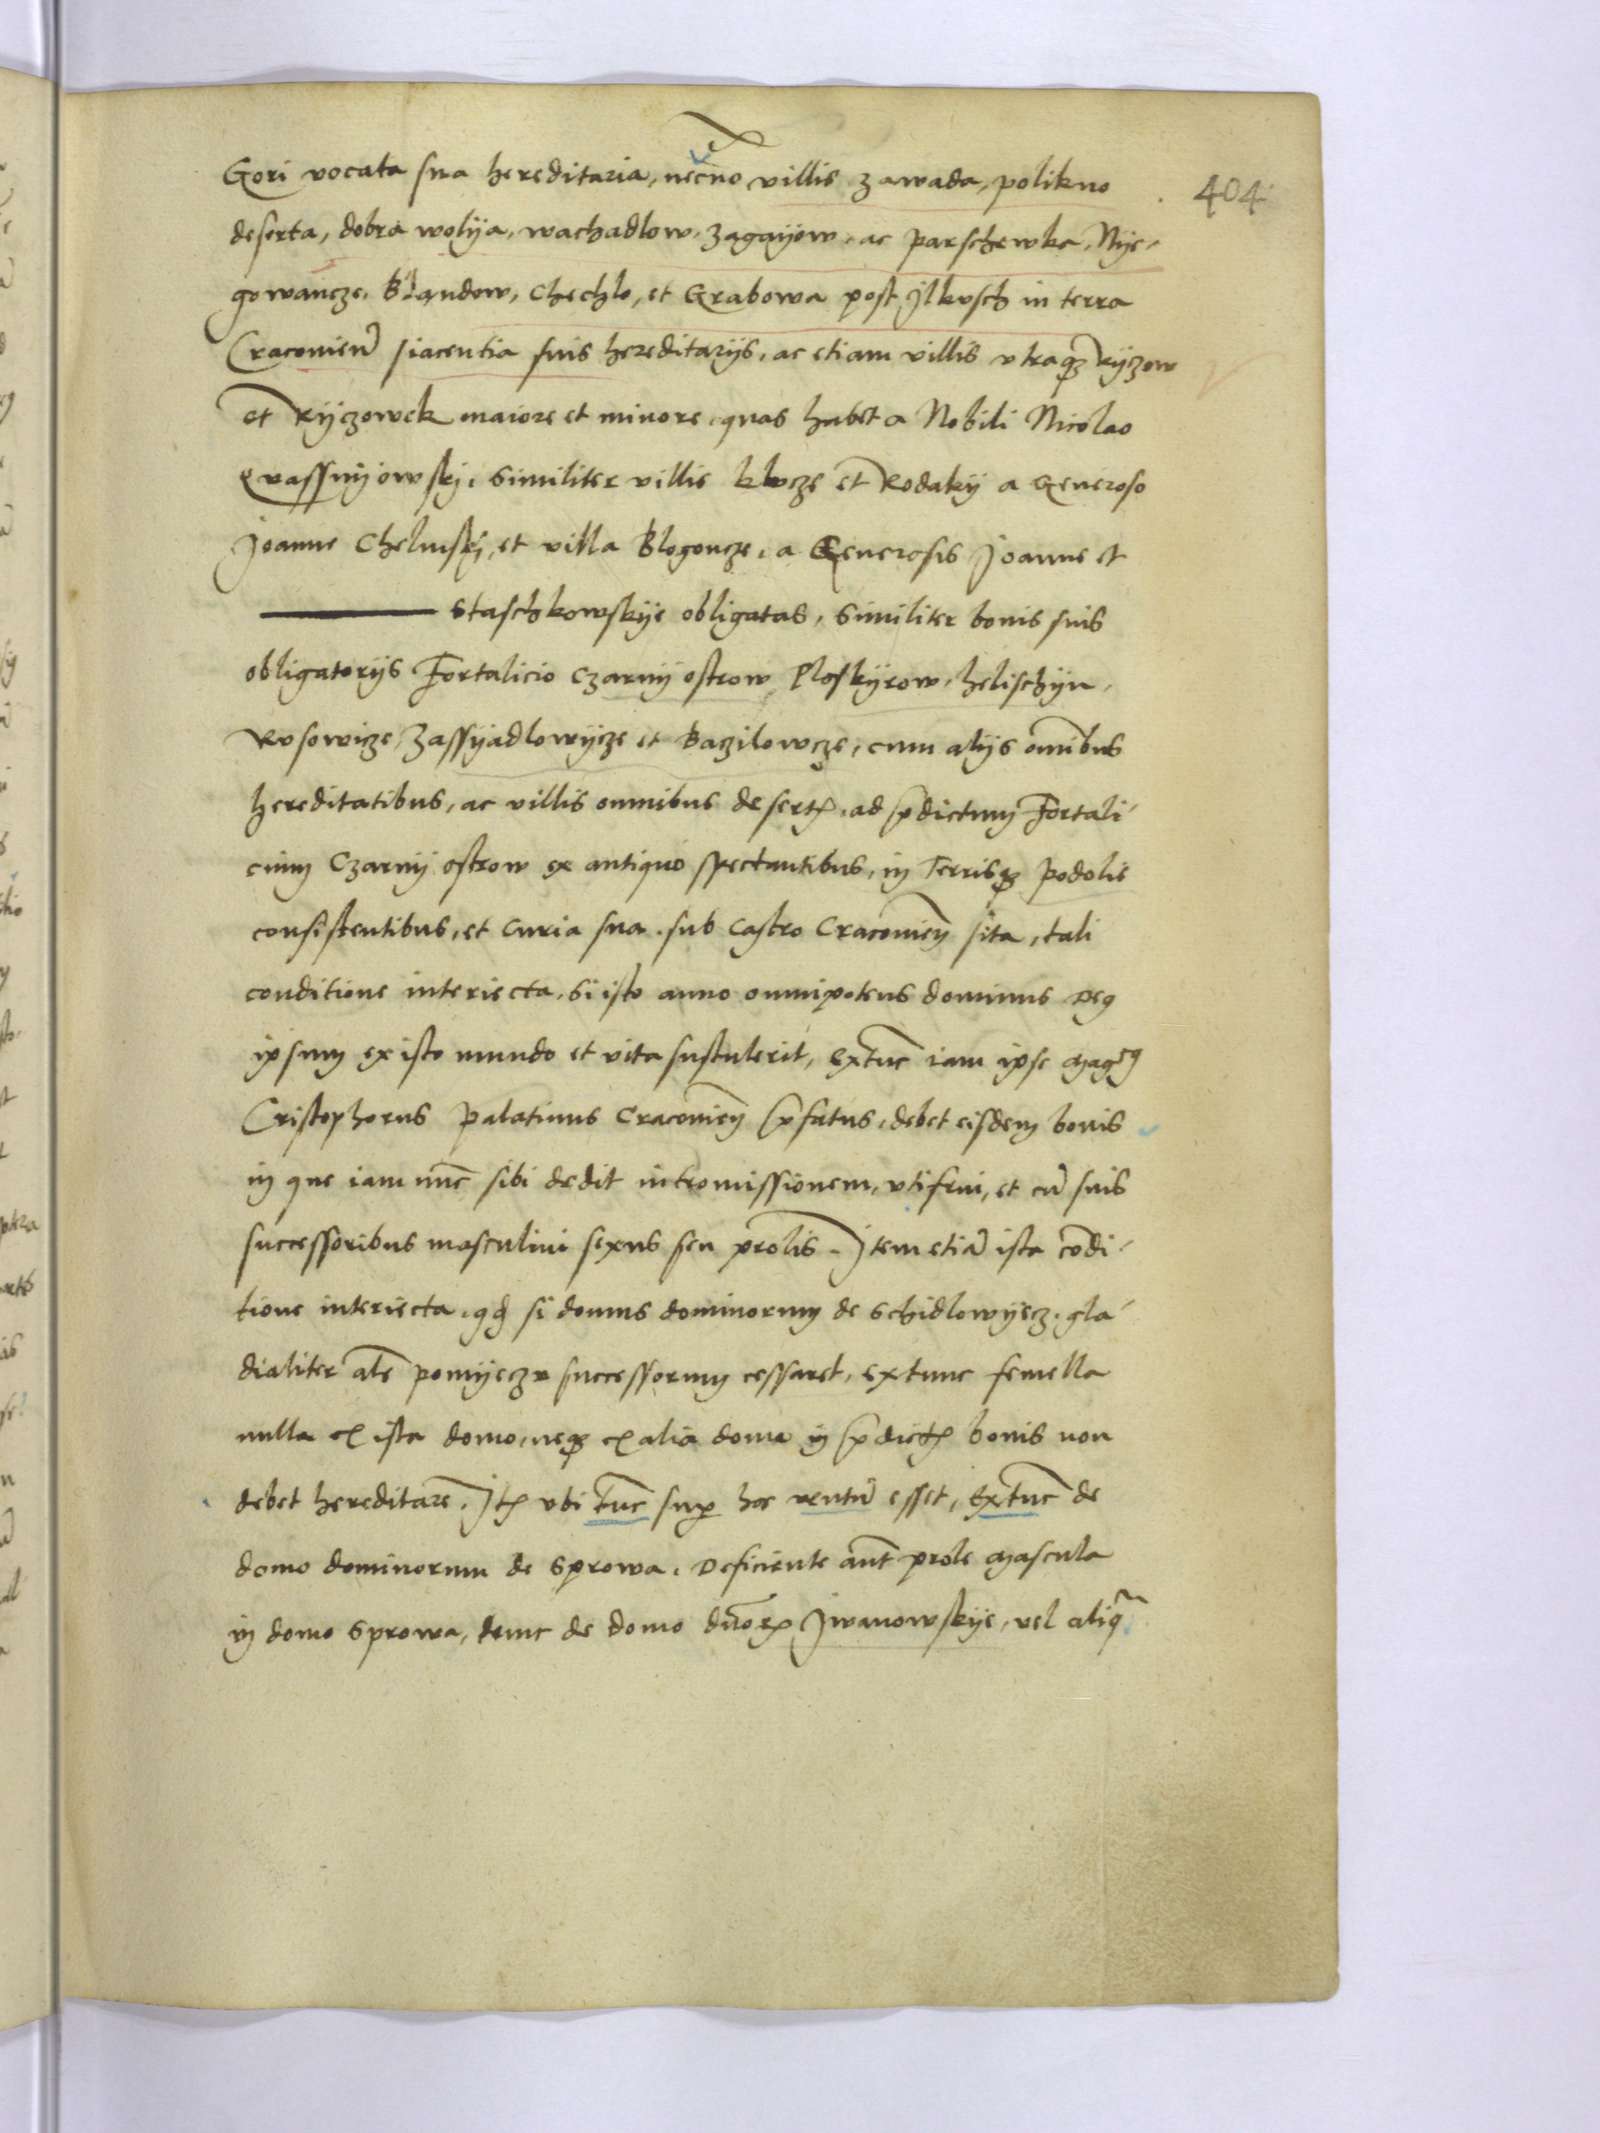 404
Gori vocata sua hereditaria, necno villis zawada, polikno
deserta, dobra wolya, wachadlow, zagayow, ac parschewka, Nye-
gowancze, Blandow, Chechlo, et Grabowa post Jlkusch in terra
Cracovien siacentia suis hereditarijs, ac etiam villis utraqȝ Ryczow
et Ryczowek maiore et minore, quas habet a Nobili Nicolao
Qvassnyowskj, Similiter villis klucze et Rodaky a Generoso
Joanne Chelmskj, et villa Blogoncze, a Generosis Joanne et
Staschkowskye obligatas, Similiter bonis suis
obligatorijs Fortalicio Czarny ostrow, Ploskyrow, helischyn,
Rusowicze, Zassyadlowycze et Bazilowcze, cum alijs omibus
hereditatibus, ac villis omnibus desertꝭ, ad p̱dictum Fortali-
cium Czarny ostrow ex antiquo spectantibus, in Terrisqȝ podolie
consistentibus, et Curia sua sub Castro Cracovien sita, tali
conditione interiecta, Si isto anno omnipotens dominus Deꝰ
ipsum ex isto mundo et vita sustulerit, extunc iam ipse Magcꝰ
Cristophorus palatinus Cracovien p̱fatus, debet eisdem bonis
in que iam nuc sibi dedit intromissionem, utifrui, et cū suis
successoribus masculini sexus seu prolis. Jtem etiā ista codi-
tione interiecta, qd si domus dominorum de Schidlowyecz, gla-
dialiter als pomyeczu successorum cessaret, extunc femella
nulla ex ista domo, neqȝ ex alia domo in p̱dictꝭ bonis non
debet hereditare. Jtꝭ ubi tunc sup hoc ventū esset, Extunc de
domo dominorum de Sprowa. Deficiente aut prole Mascula
in domo Sprowa, tunc de domo dnorꝝ Jwanowskye, vel aliqª